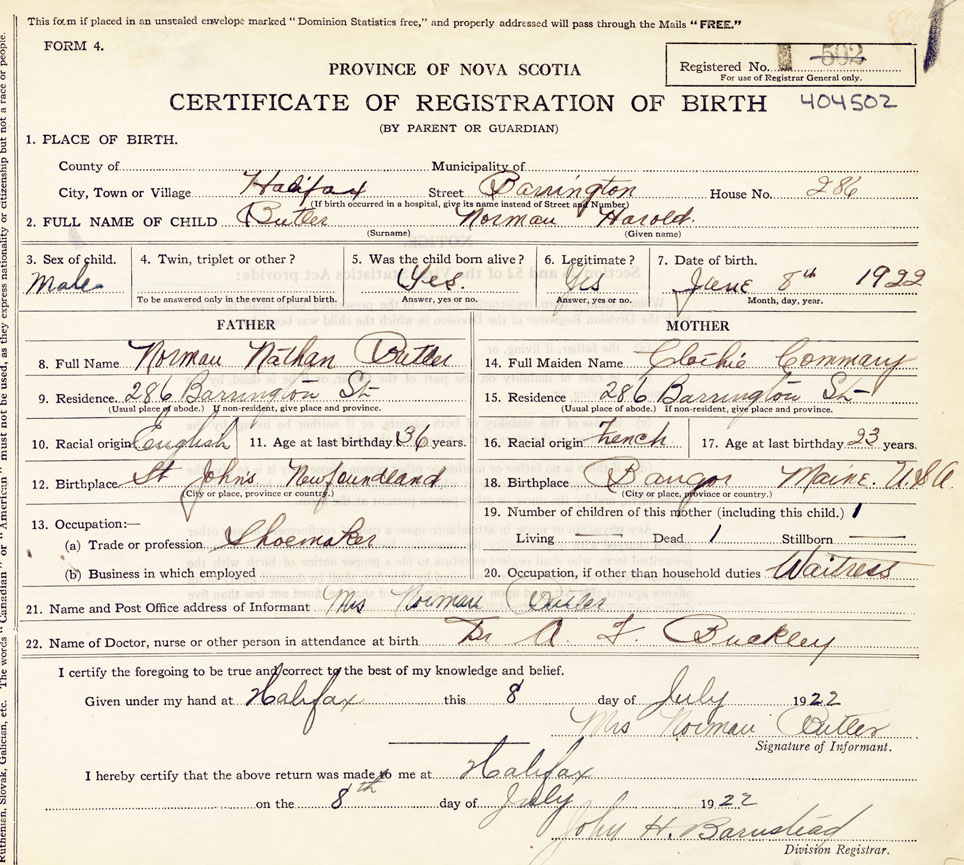 This form if placed in an unsealed envelope marked "Dominion Statistics free," and properly addressed will pass through the Mails "FREE."
FORM 4.
Registered No. 502
For use of Registrar General only.
PROVINCE OF NOVA SCOTIA
CERTIFICATE OF REGISTRATION OF BIRTH 404502
(BY PARENT OR GUARDIAN)
1. PLACE OF BIRTH.
County of Municipality of
City, Town or Village Halifax Street Barrington House No. 286
(If birth occurred in a hospital, give its name instead of Street and Number)
2. FULL NAME OF CHILD Butler Norman Harold.
(Surname) (Given name)
3. Sex of child. 4. Twin, triplet or other? 5. Was the child born alive? 6. Legitimate? 7. Date of birth.
Male Yes. Yes June 8th 1922
To be answered only in the event of plural birth. Answer, yes or no. Answer, yes or no. Month, day, year.
FATHER
8. Full Name Norman Nathan Butler
9. Residence 286 Barrington St
(Usual place of abode.) If non-resident, give place and province.
10. Racial origin English 11. Age at last birthday 36 years.
12. Birthplace St Johns Newfoundland
(City or place, province or country.)
13. Occupation:—
(a) Trade or profession Shoemaker
(b) Business in which employed
MOTHER
14. Full Maiden Name Commary
15. Residence 286 Barrington St
(Usual place of abode.) If non-resident, give place and province.
16. Racial origin French 17. Age at last birthday 23 years.
18. Birthplace Bangor Maine. U.S.A.
(City or place, province or country.)
19. Number of children of this mother (including this child.) 1
Living — Dead 1 Stillborn —
20. Occupation, if other than household duties Waitress
21. Name and Post Office address of Informant Mrs Norman Butler
22. Name of Doctor, nurse or other person in attendance at birth Dr A. F. Buckley
I certify the foregoing to be true and correct to the best of my knowledge and belief.
Given under my hand at Halifax this 8 day of July 1922
Mrs Norman Butler
Signature of Informant.
I hereby certify that the above return was made to me at Halifax
on the 8th day of July 1922
John H. Barnstead
Division Registrar.
Ruthenian, Slovak, Galician, etc. The words "Canadian" or "American" must not be used, as they express nationality or citizenship but not a race or people.